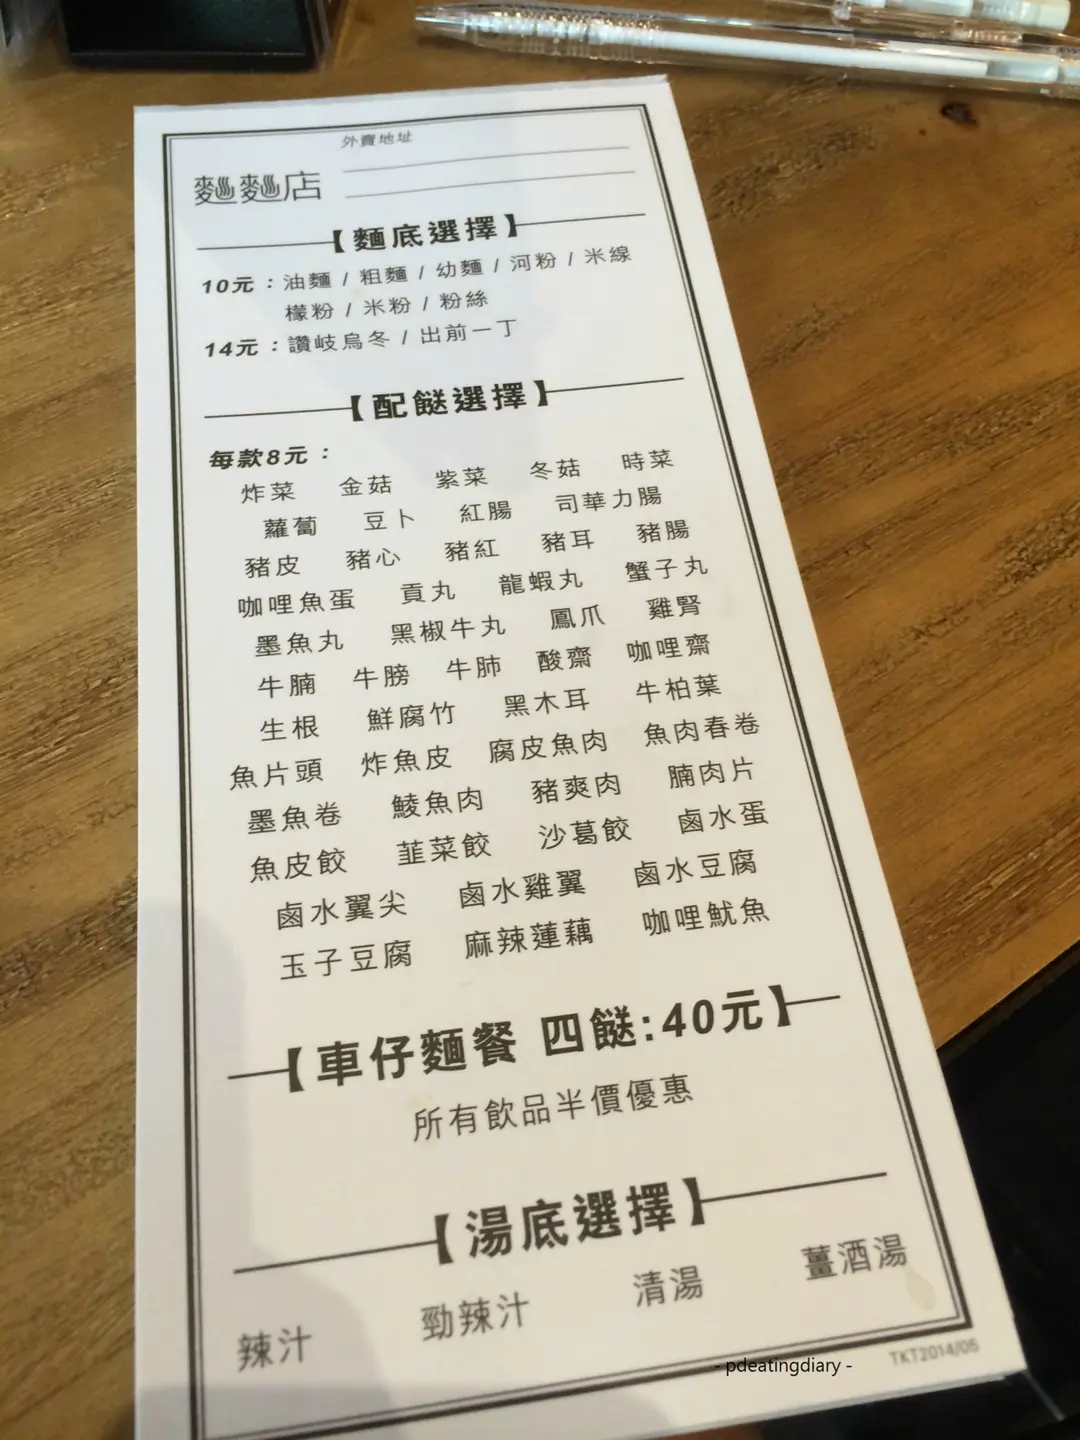 外賣地址
麵麵店
【麵底選擇】
10元：油麵 / 粗麵 / 幼麵 / 河粉 / 米線
檬粉 / 米粉 / 粉絲
14元：讚岐烏冬 / 出前一丁
【配餸選擇】
每款8元：
炸菜 金菇 紫菜 冬菇 時菜
蘿蔔 豆卜 紅腸 司華力腸
豬皮 豬心 豬紅 豬耳 豬腸
咖哩魚蛋 貢丸 龍蝦丸 蟹子丸
墨魚丸 黑椒牛丸 鳳爪 雞腎
牛腩 牛膀 牛肺 酸齋 咖哩齋
生根 鮮腐竹 黑木耳 牛柏葉
魚片頭 炸魚皮 腐皮魚肉 魚肉春卷
墨魚卷 鯪魚肉 豬爽肉 腩肉片
魚皮餃 韮菜餃 沙葛餃 鹵水蛋
鹵水翼尖 鹵水雞翼 鹵水豆腐
玉子豆腐 麻辣蓮藕 咖哩魷魚
【車仔麵餐 四餸:40元】
所有飲品半價優惠
【湯底選擇】
辣汁 勁辣汁 清湯 薑酒湯
TKT2014/05
- pdeatingdiary -